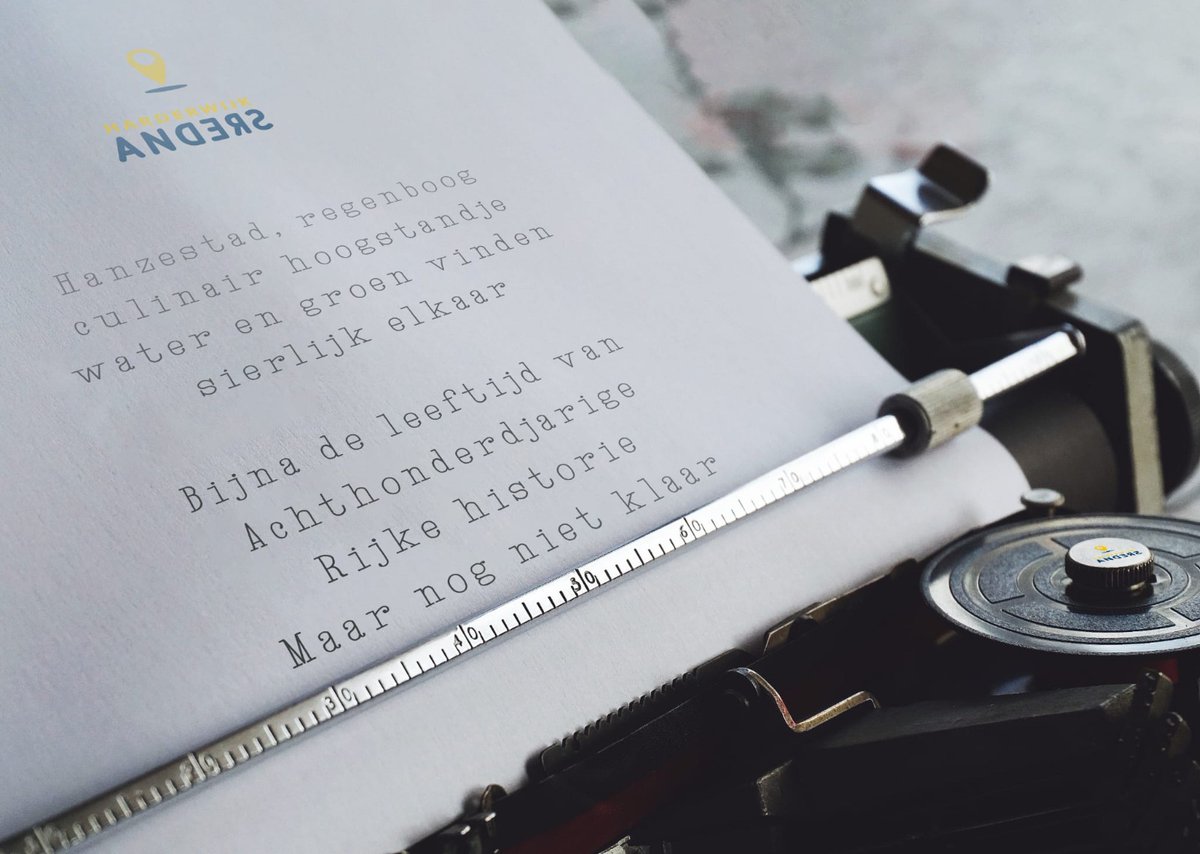 HARDERWIJK
ANDERS
Hanzestad, regenboog
culinair hoogstandje
water en groen vinden
sierlijk elkaar
Bijna de leeftijd van
Achthonderdjarige
Rijke historie
Maar nog niet klaar
20 30 40 50 60 70 80
ANDERS